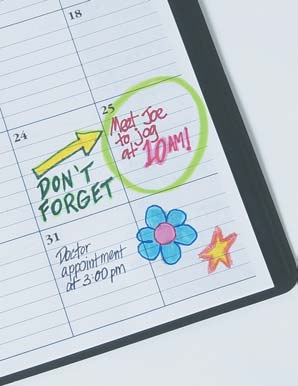 18
25
Meet Joe
to jog
at 10AM!
24
DON'T
FORGET
31
Doctor
appointment
at 3:00 pm